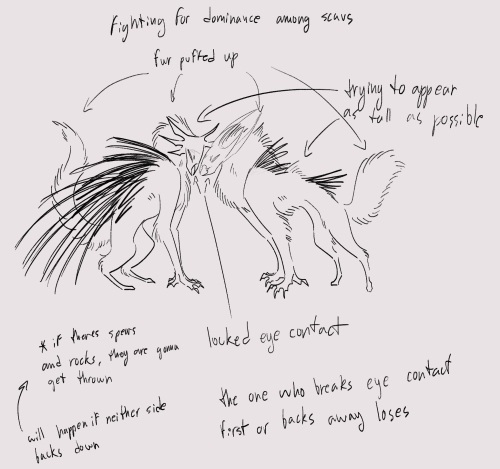 Fighting for dominance among scavs
fur puffed up
trying to appear
as tall as possible
locked eye contact
* if theres spears
and rocks, they are gonna
get thrown
will happen if neither side
backs down
the one who breaks eye contact
first or backs away loses